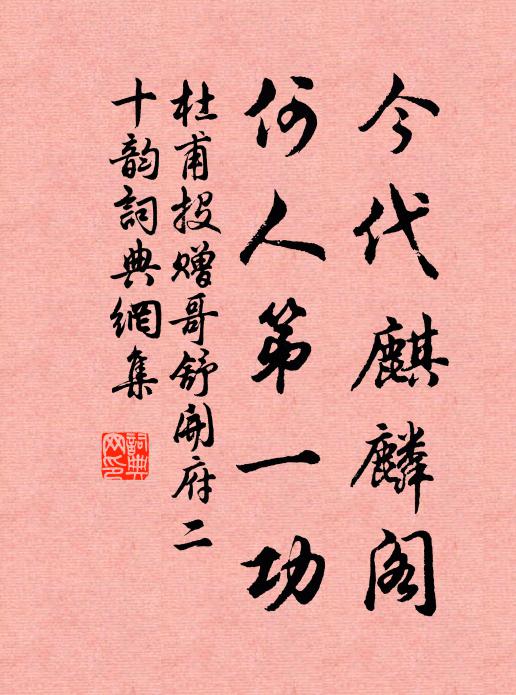 今代麒麟阁
何人第一功
杜甫投赠哥舒开府二
十韵词典網集
詞典网印